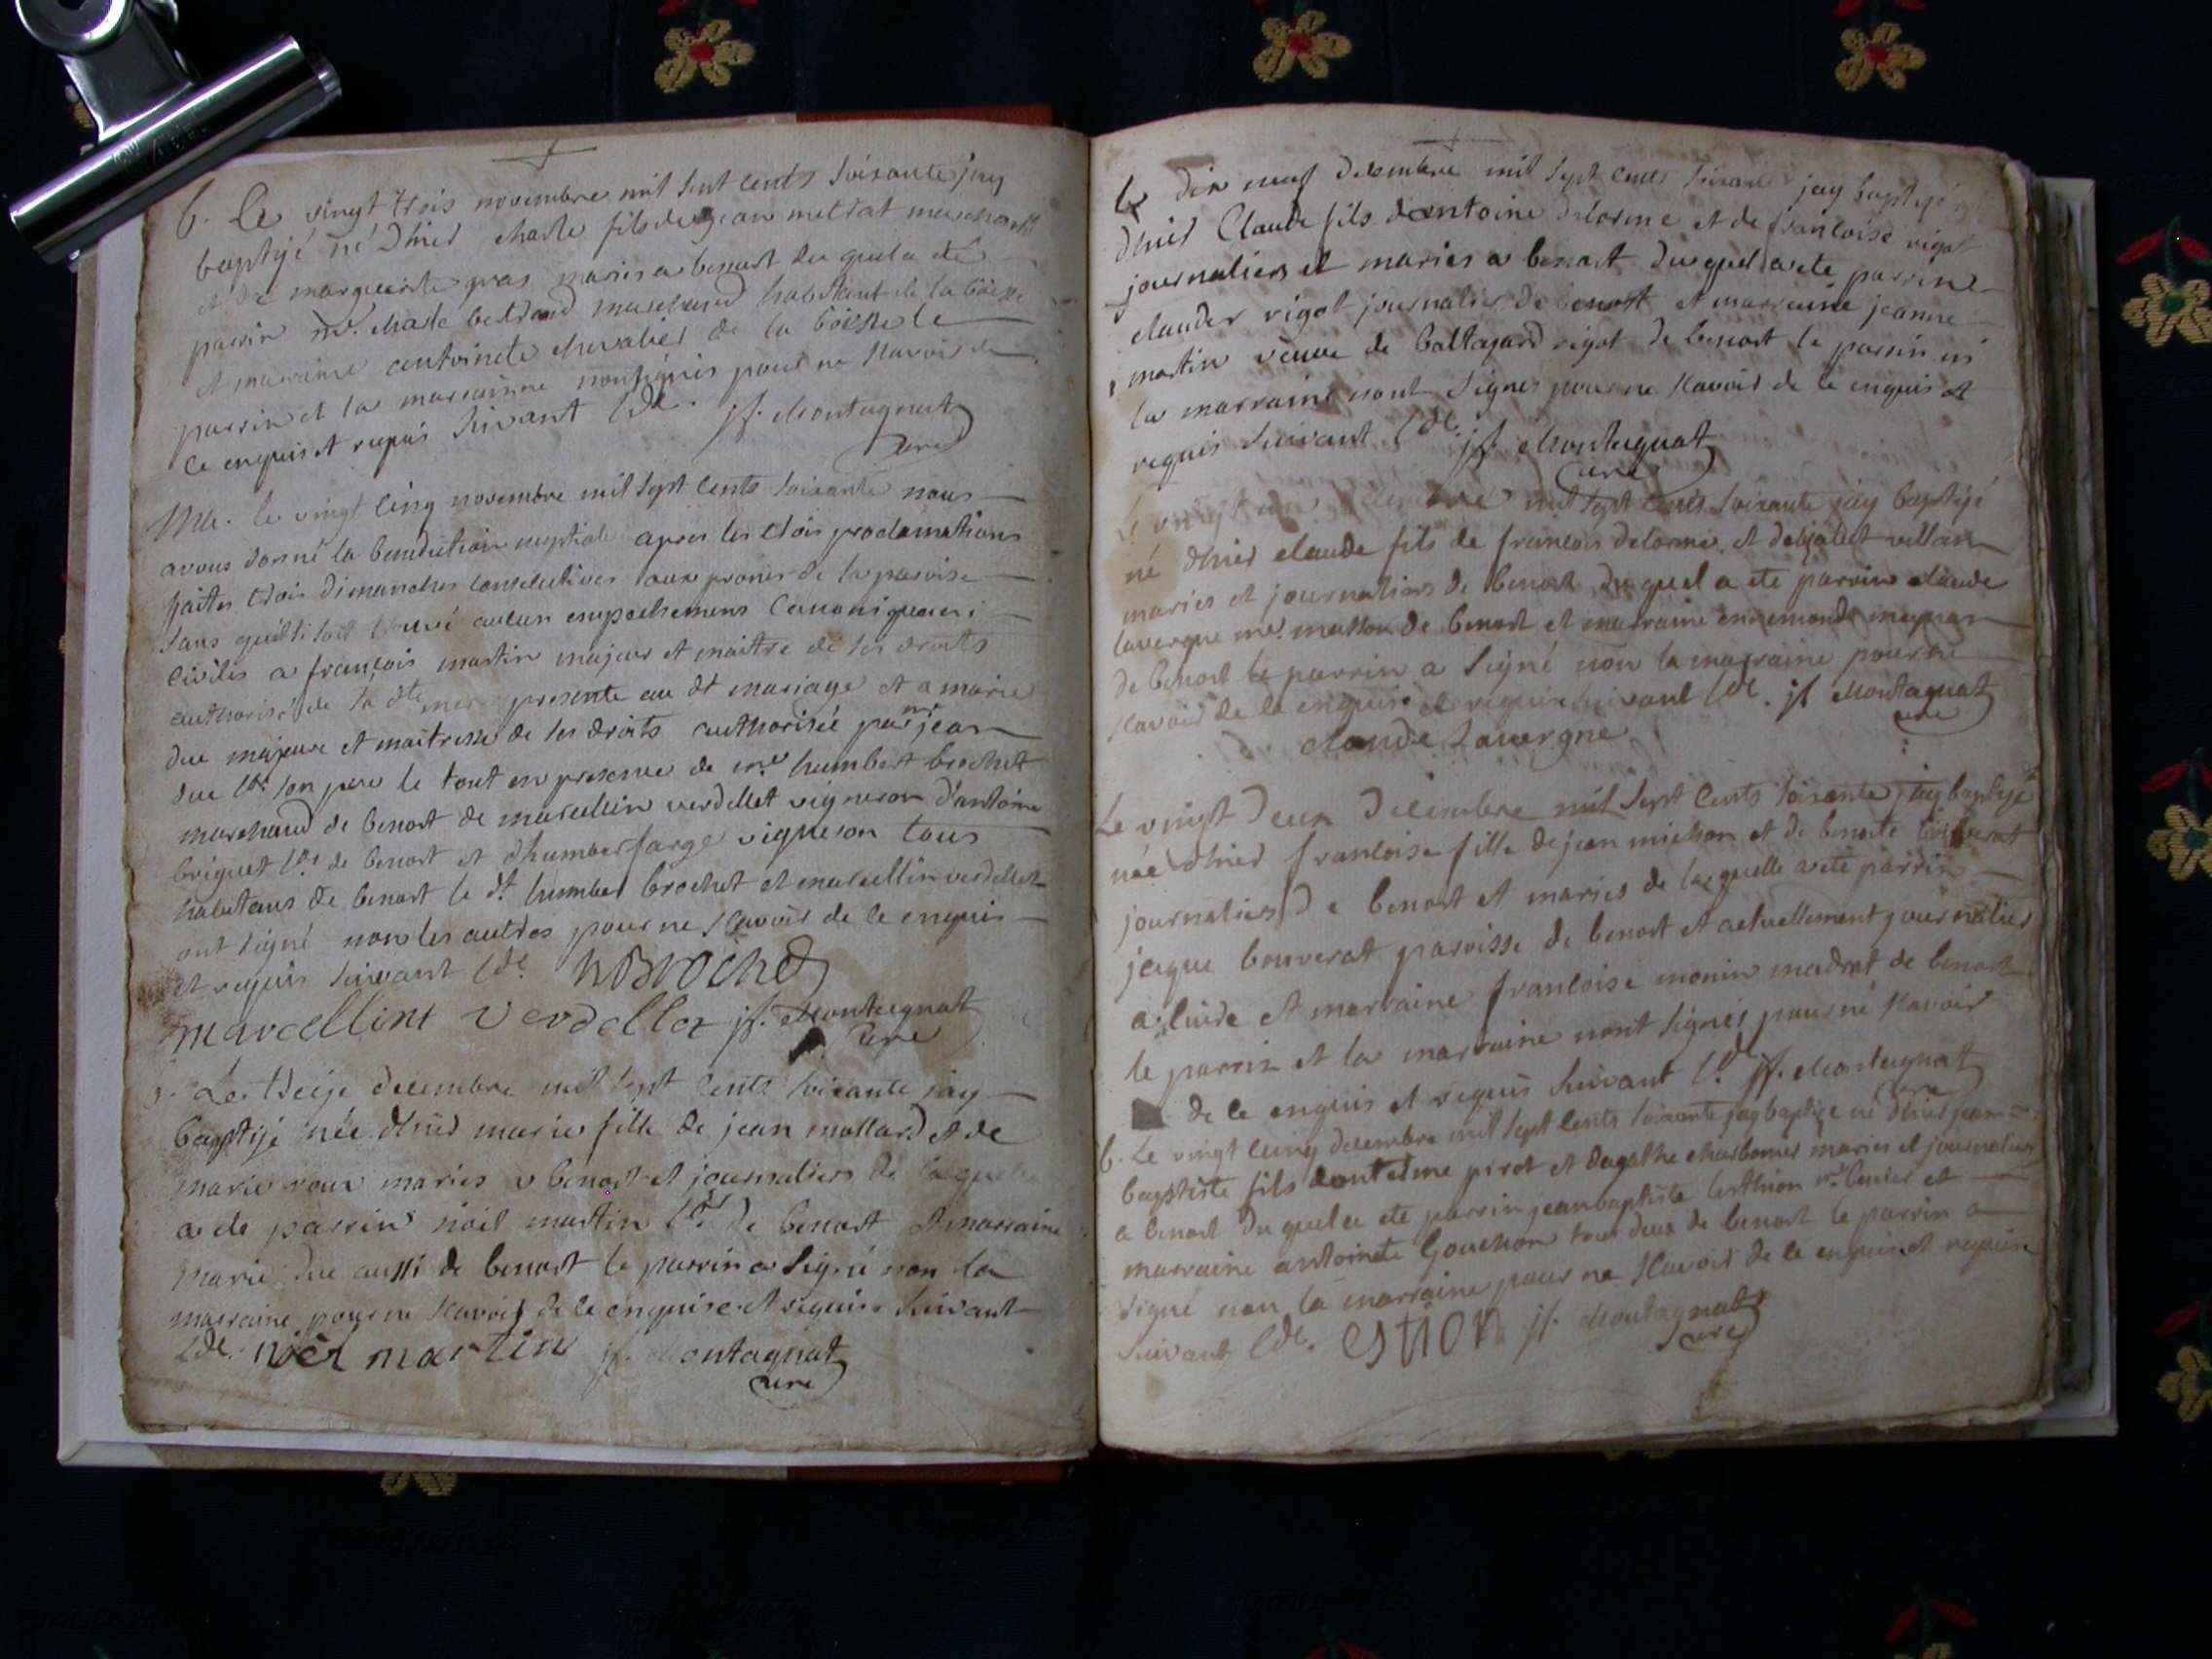 b. Le vingt trois novembre mil sept cents soixante jay
baptizé né d'hier charle fils de jean mettrat marchand
et de marguerite gras mariés a benost du quel a été
parrin mr. charle beltrand marchand habitant de la boisse
et marraine antoinete chevalier de la boisse le
parrin et la marrainne nont signés pour ne scavoir de
ce enquis et requis suivant l'de. jf. Montagnat
curé
Me. le vingt cinq novembre mil sept cents soixante nous
avons donné la benediction nuptiale apres les trois proclamations
faites trois dimanches consecutives aux prones de la paroise
sans quil ti soit trouvé aucun empechemens canoniques ni
civiles a françois martin majeur et maitre de ses droits
authorisé de sa dte mere presente au dt mariage et a marie
due majeure et maitresse de ses droits authorisée par jean
due lr. son pere le tout en presence de mr. humbert brochet
marchand de benost de marcellin verdellet vigneron d'antoine
briguet lr. de benost et d'humber farge vigneron tous
habitans de benost le dt. humber brochet et marcellin verdellet
ont signé non les autres pour ne scavoir de ce enquis
et requis suivant l'de. h Brochet
marcellint verdellet jf. Montagnat
curé
Le treize decembre mil sept cents soixante jay
baptizé née d'hier marie fille de jean mollard et de
marie roux mariés a benost et journaliers de laquelle
a ete parrin noil martin lr. de benost et marraine
marie due aussi de benost le parrin a signé non la
marraine pour ne scavoir de ce enquise et requise suivant
l'de. noèl martin jf. Montagnat
curé
Le dix neuf decembre mil sept cents soixante jay baptizé né
d'hier Claude fils d'antoine delorme et de francoise rigot
journaliers et mariés a benost du quel a ete parrin
claude rigot journalier de benost et marraine jeanne
martin veuve de baltazard rigot de benost le parrin ni
la marraine nont signés pour ne scavoir de ce enquis et
requis suivant l'de. jf Montagnat
curé
Le vingt un decembre mil sept cents soixante jay baptizé
né d'hier claude fils de francois delorme et de
mariés et journaliers de benost du quel a ete parrin claude
lavergne me. masson de benost et marraine ennemonde
de benost le parrin a signé non la marraine pour ne
scavoir de ce enquise et requise suivant l'de. jf Montagnat
curé
claude Lavergne
Le vingt deux decembre mil sept cents soixante jay baptizé
née d'hier francoise fille de jean michon et de benoite
journaliers de benost et mariés de laquelle a ete parrin
jaque bouverat paroisse de benost et actuellement journalier
a et marraine francoise monin de benost
le parrin et la marraine nont signés pour ne scavoir
de ce enquis et requis suivant l'de jf. Montagnat
curé
b. Le vingt cinq decembre mil sept cents soixante jay baptizé né d'hier jean
baptiste fils d'antelme pirot et d'agathe charbonnier mariés et journaliers
a benost du quel a ete parrin jean baptiste et
marraine antoinete Gouchon tous deux de benost le parrin a
signé non la marraine pour ne scavoir de ce enquise et requise
suivant l'de. jf. Montagnat
curé